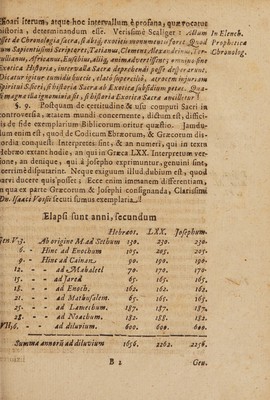 Noari iterum, atque hoc intervallum à profana, quæ vocatur
historia, determinandum esse. Verissime Scaliger: Actum
esset de Chronologia sacra, si absq; exoticu monumentis foret. Quod
In Elench.
Prophetica
Chronolog.
um Sapientissimi Scriptores, Tatianus, Clemens, Alexandrinus, Ter-
tullianus, Affricanus, Eusebius, aliiq; animadvertissent; omnino sine
Exotica Historia, intervalla Sacra deprehendi posse desperarunt.
Dicatur igitur tumidu hœtu, elatu supercilio, atrocem injuriam
Spiritui S. fieri, si historia Sacra ab Exotica subsidium petat. Qua-
magna illa ignominia sit, si historia Exotica Sacra ancilletur.
§. 9. Postquam de certitudine & usu computi Sacri in
controversia, ætatum mundi concernente, dictum est, diffici-
is de fide exemplarium Biblicorum oritur quæstio. Jamdu-
um enim est, quod de Codicum Ebræorum, & Græcorum dis-
cordia conquesti Interpretes sint, & an numeri, qui in textu
Hebræo extant hodie, an qui in Græca LXX. Interpretum ver-
sione, an denique, qui à Josepho exprimuntur, genuini sint,
acerrimè disputarint. Neque exiguum illud dubium est, quod
parvi ducere quis posset; Ecce enim immanem differentiam,
in qua ex parte Græcorum & Josephi consignanda, Clarissimi
Dn. Isaaci Vossii secuti sumus exemplaria.
Elapsi sunt anni, secundum
Hebræos. LXX. Josephum.
Gen. V, 3. Ab origine M. ad Sethum 130. 230. 230.
6. - Hinc ad Enochum 105. 205. 205.
9. - Hinc ad Cainan 90. 190. 190.
12. - - ad Mahaleel 70. 170. 170.
15. - - ad Jared 65. 165. 165.
18. - - ad Enoch. 162. 162. 162.
21. - - ad Mathusalem. 65. 165. 165.
25. - - ad Lamechum. 187. 187. 187.
28. - - ad Noachum. 182. 188. 182.
VII, 6. - - ad diluvium. 600. 600. 600.
Summa annorũ ad diluvium 1656. 2262. 2256.
B 2
Gen.